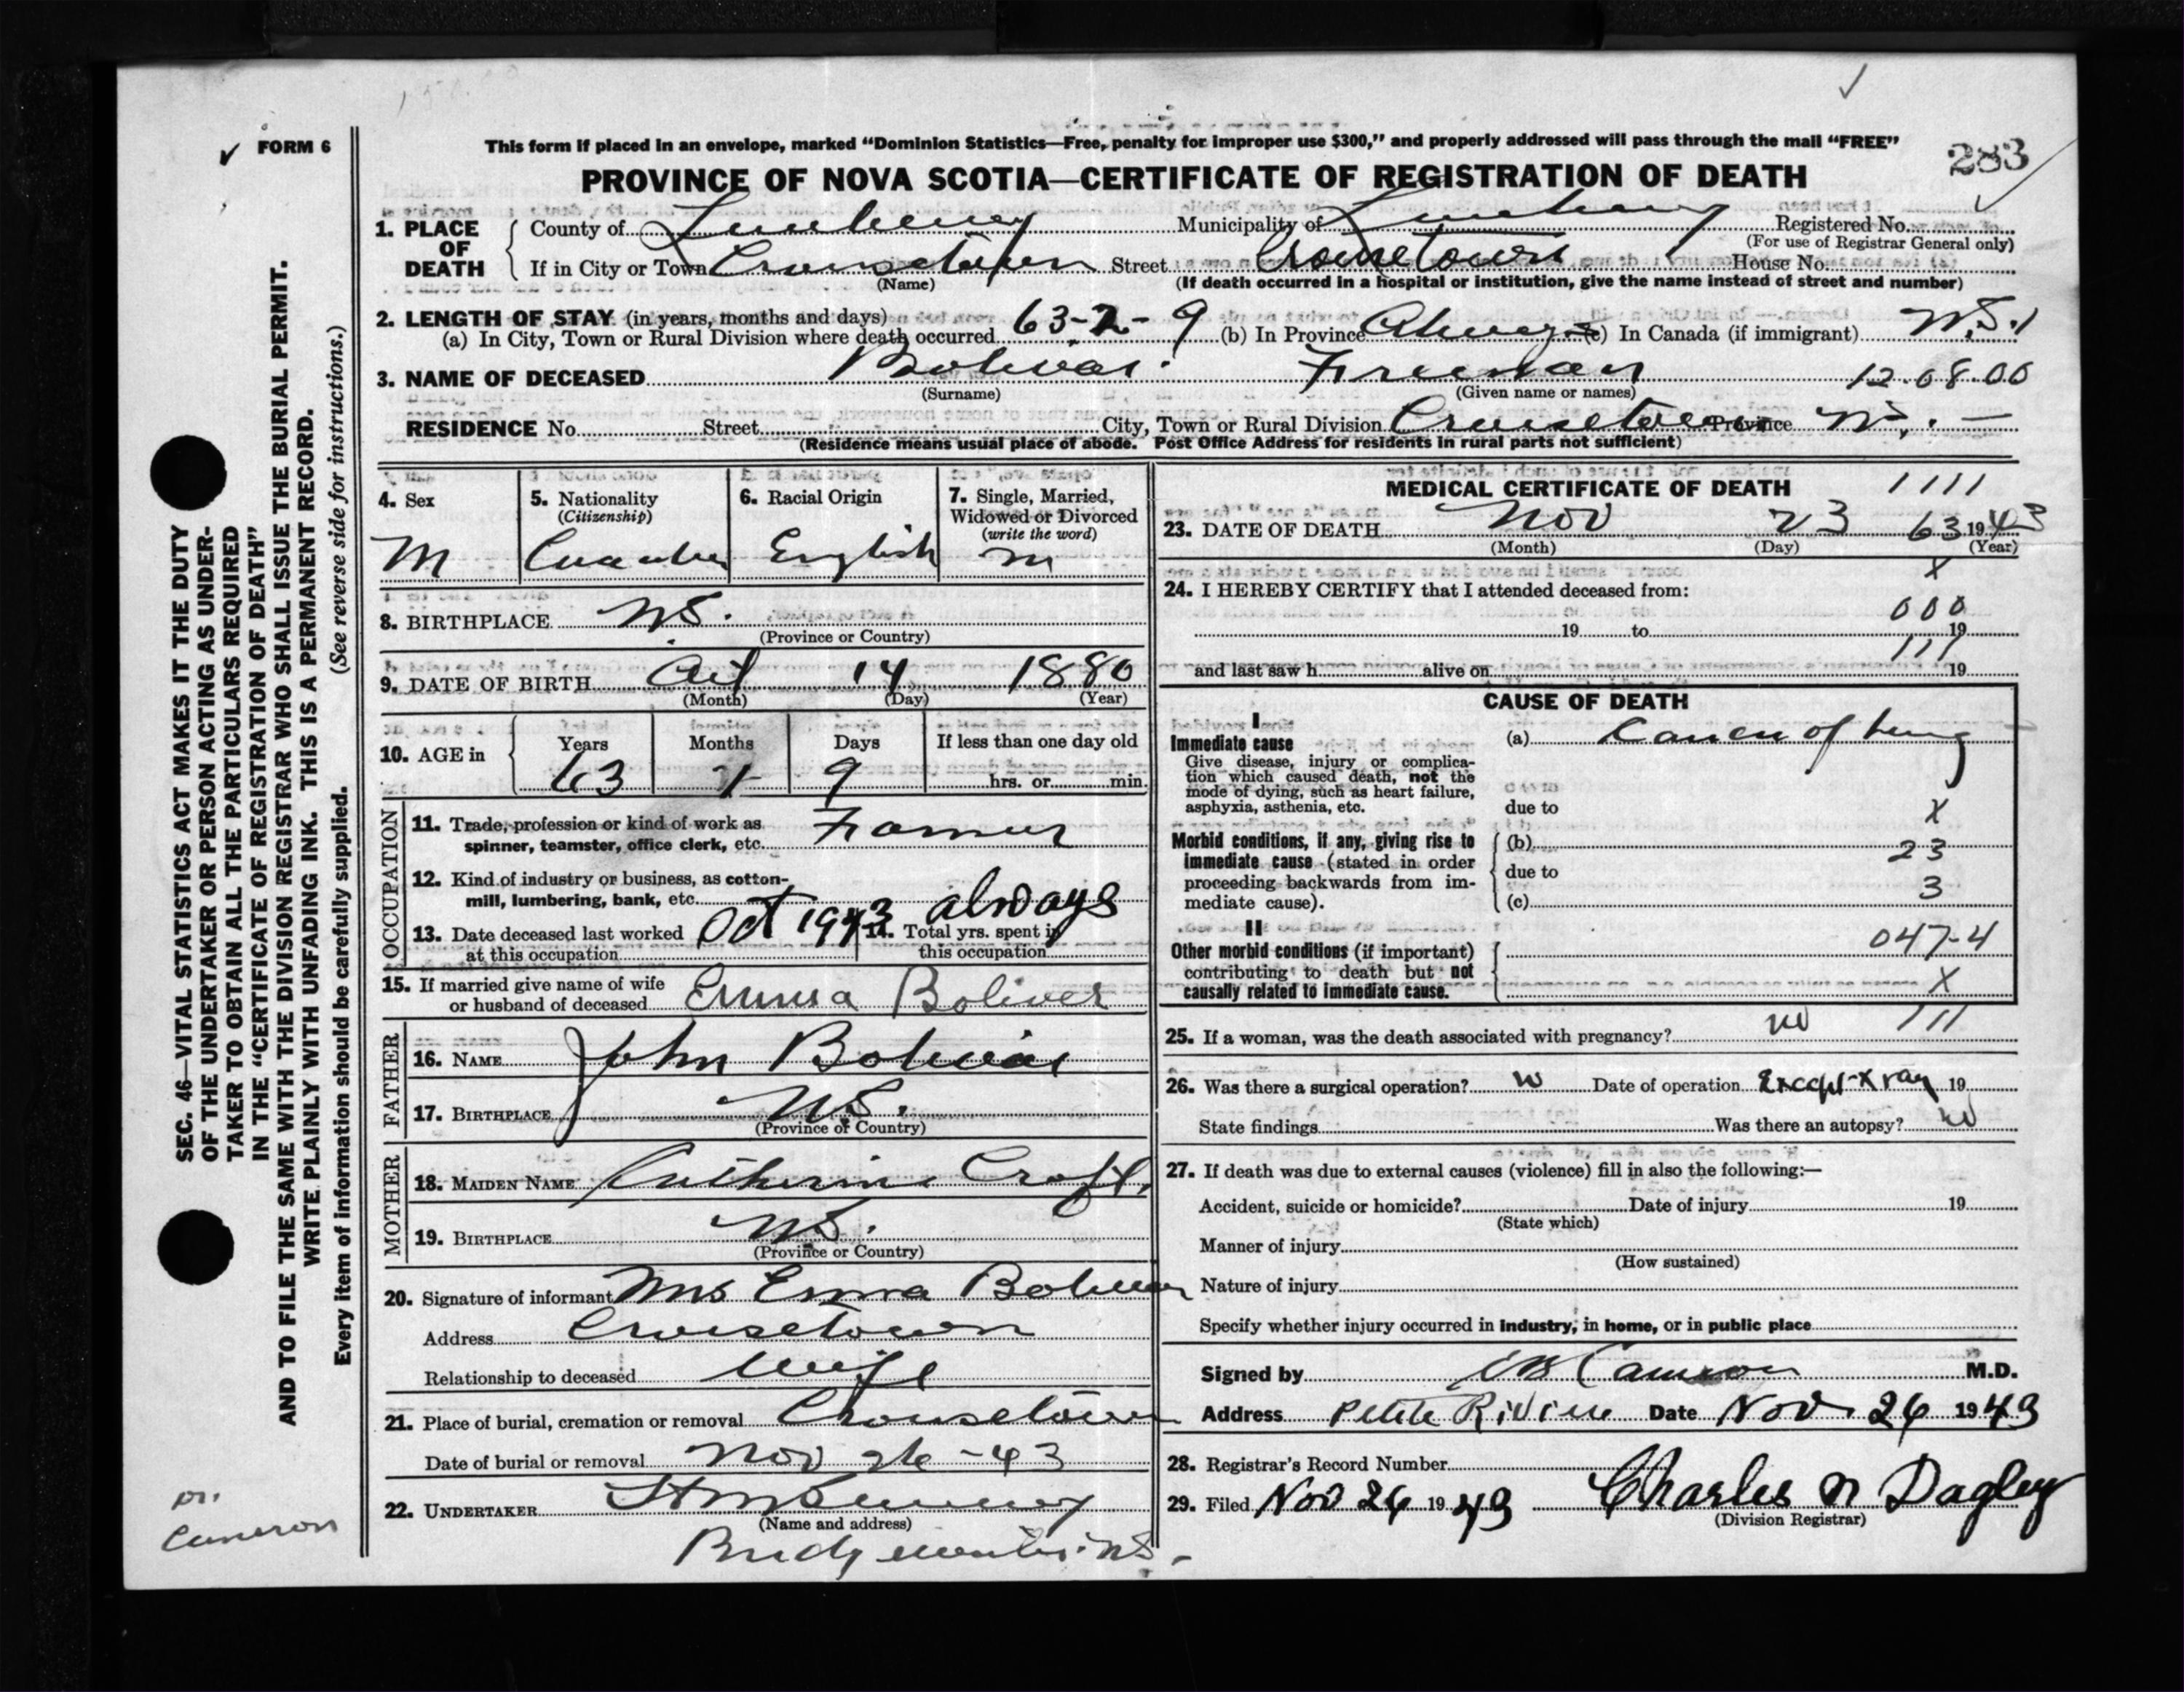 FORM 6
This form if placed in an envelope, marked “Dominion Statistics—Free, penalty for improper use $300,” and properly addressed will pass through the mail “FREE”
283
PROVINCE OF NOVA SCOTIA—CERTIFICATE OF REGISTRATION OF DEATH
1. PLACE OF DEATH
County of Lunenburg Municipality of Lunenburg Registered No.
(For use of Registrar General only)
If in City or Town Crousetown Street Crousetown House No.
(Name) (If death occurred in a hospital or institution, give the name instead of street and number)
2. LENGTH OF STAY (in years, months and days)
(a) In City, Town or Rural Division where death occurred 63-2-9 (b) In Province Always (c) In Canada (if immigrant) N.S.
3. NAME OF DECEASED Bolivar Freeman 12.08.00
(Surname) (Given name or names)
RESIDENCE No. Street City, Town or Rural Division Crousetown Province N.
(Residence means usual place of abode. Post Office Address for residents in rural parts not sufficient)
4. Sex 5. Nationality (Citizenship) 6. Racial Origin 7. Single, Married, Widowed or Divorced (write the word)
M English m
8. BIRTHPLACE NS.
(Province or Country)
9. DATE OF BIRTH 14 1880
(Month) (Day) (Year)
10. AGE in Years Months Days If less than one day old
63 1 9 hrs. or min.
OCCUPATION
11. Trade, profession or kind of work as spinner, teamster, office clerk, etc. Farmer
12. Kind of industry or business, as cotton-mill, lumbering, bank, etc.
13. Date deceased last worked at this occupation Oct 1943 14. Total yrs. spent in this occupation always
15. If married give name of wife or husband of deceased Emma Boliver
FATHER
16. NAME John Bolivar
17. BIRTHPLACE NS.
(Province or Country)
MOTHER
18. MAIDEN NAME Catherine Croft
19. BIRTHPLACE NS.
(Province or Country)
20. Signature of informant Mrs Emma Boliver
Address Crousetown
Relationship to deceased Wife
21. Place of burial, cremation or removal Crousetown
Date of burial or removal Nov 26-43
22. UNDERTAKER
(Name and address)
Bridgewater NS-
MEDICAL CERTIFICATE OF DEATH 1111
23. DATE OF DEATH Nov 23 63 1943
(Month) (Day) (Year)
X
24. I HEREBY CERTIFY that I attended deceased from:
000
19 to 19
111
and last saw h alive on 19
CAUSE OF DEATH
I
Immediate cause
Give disease, injury or complica-
tion which caused death, not the
mode of dying, such as heart failure,
asphyxia, asthenia, etc.
(a) Cancer of lung
due to X
Morbid conditions, if any, giving rise to
immediate cause (stated in order
proceeding backwards from im-
mediate cause).
(b) 23
due to 3
(c)
II
047-4
Other morbid conditions (if important)
contributing to death but not
causally related to immediate cause.
X
25. If a woman, was the death associated with pregnancy? no 111
26. Was there a surgical operation? no Date of operation Except-Xray 19
State findings Was there an autopsy? no
27. If death was due to external causes (violence) fill in also the following:—
Accident, suicide or homicide? Date of injury 19
(State which)
Manner of injury
(How sustained)
Nature of injury
Specify whether injury occurred in industry, in home, or in public place
Signed by Cameron M.D.
Address Petite Riviere Date Nov. 26 1943
28. Registrar's Record Number
29. Filed Nov 26 1943 Charles N Dagley
(Division Registrar)
SEC. 46—VITAL STATISTICS ACT MAKES IT THE DUTY
OF THE UNDERTAKER OR PERSON ACTING AS UNDER-
TAKER TO OBTAIN ALL THE PARTICULARS REQUIRED
IN THE “CERTIFICATE OF REGISTRATION OF DEATH”
AND TO FILE THE SAME WITH THE DIVISION REGISTRAR WHO SHALL ISSUE THE BURIAL PERMIT.
WRITE PLAINLY WITH UNFADING INK. THIS IS A PERMANENT RECORD.
Every item of information should be carefully supplied. (See reverse side for instructions.)
Dr.
Cameron